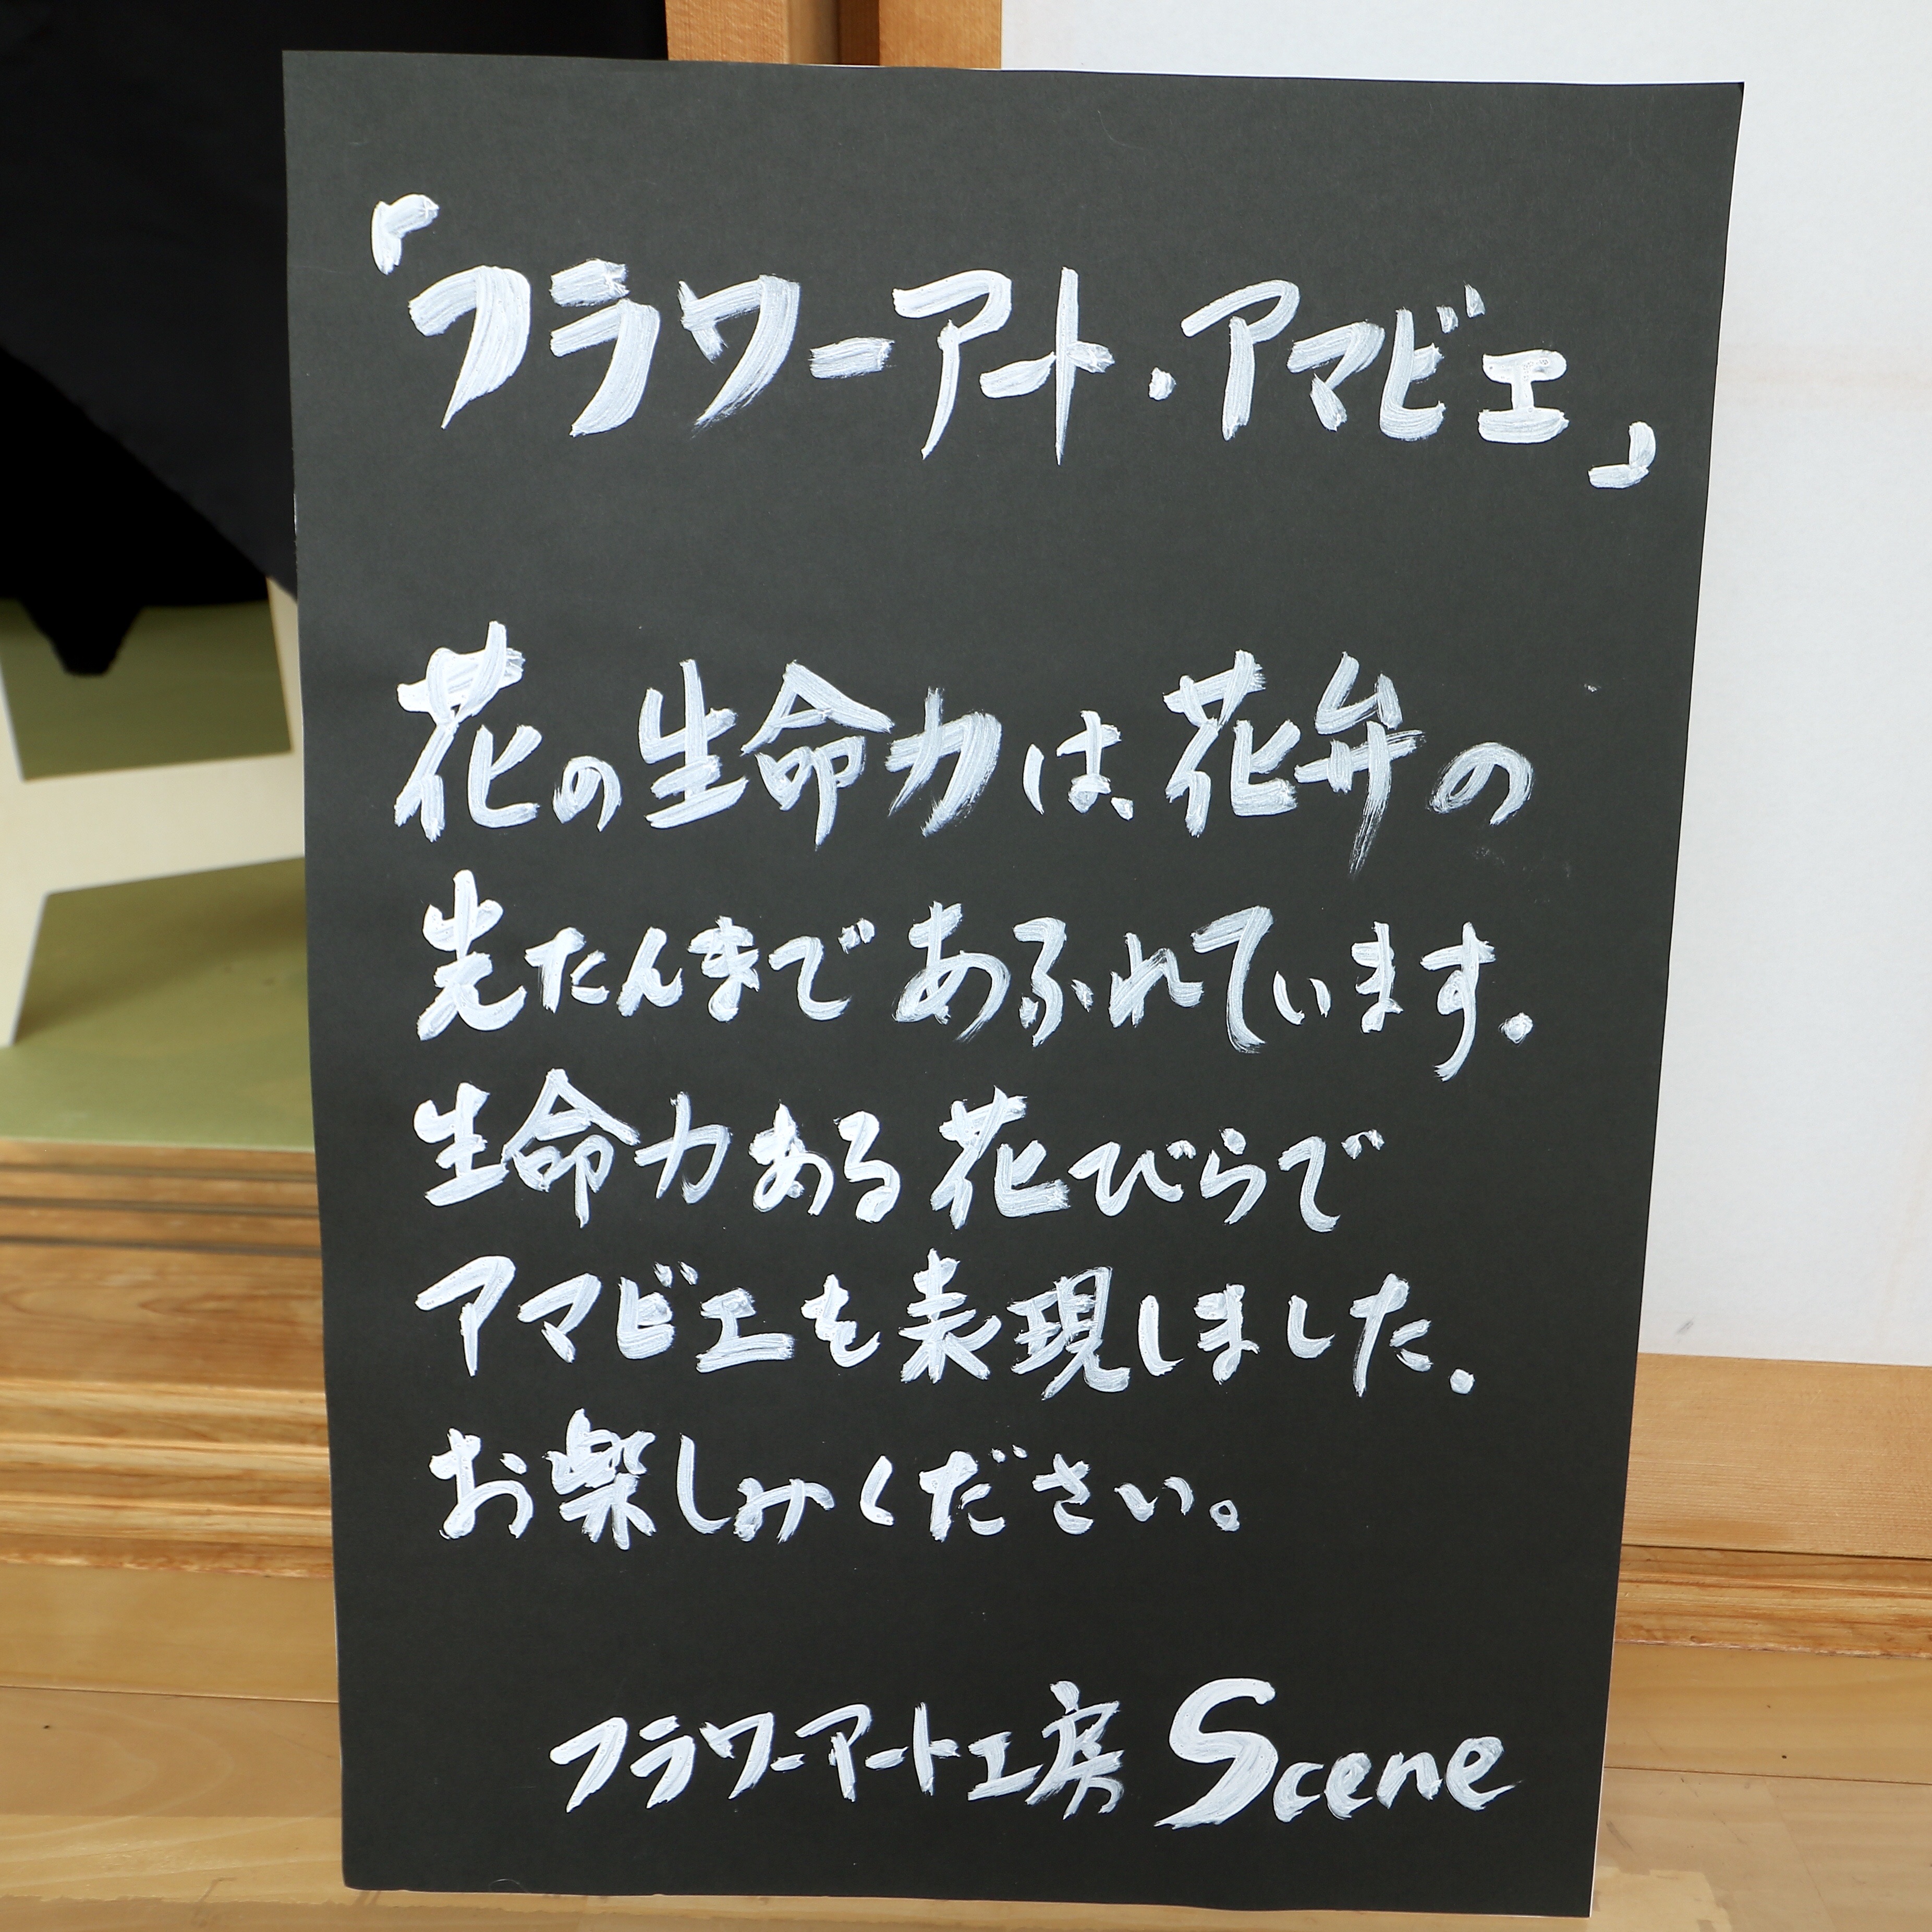 「フラワーアート・アマビエ」
花の生命力は、花弁の
先たんまであふれています.
生命力ある花びらで
アマビエを表現しました.
お楽しみください。
フラワーアート工房 Scene